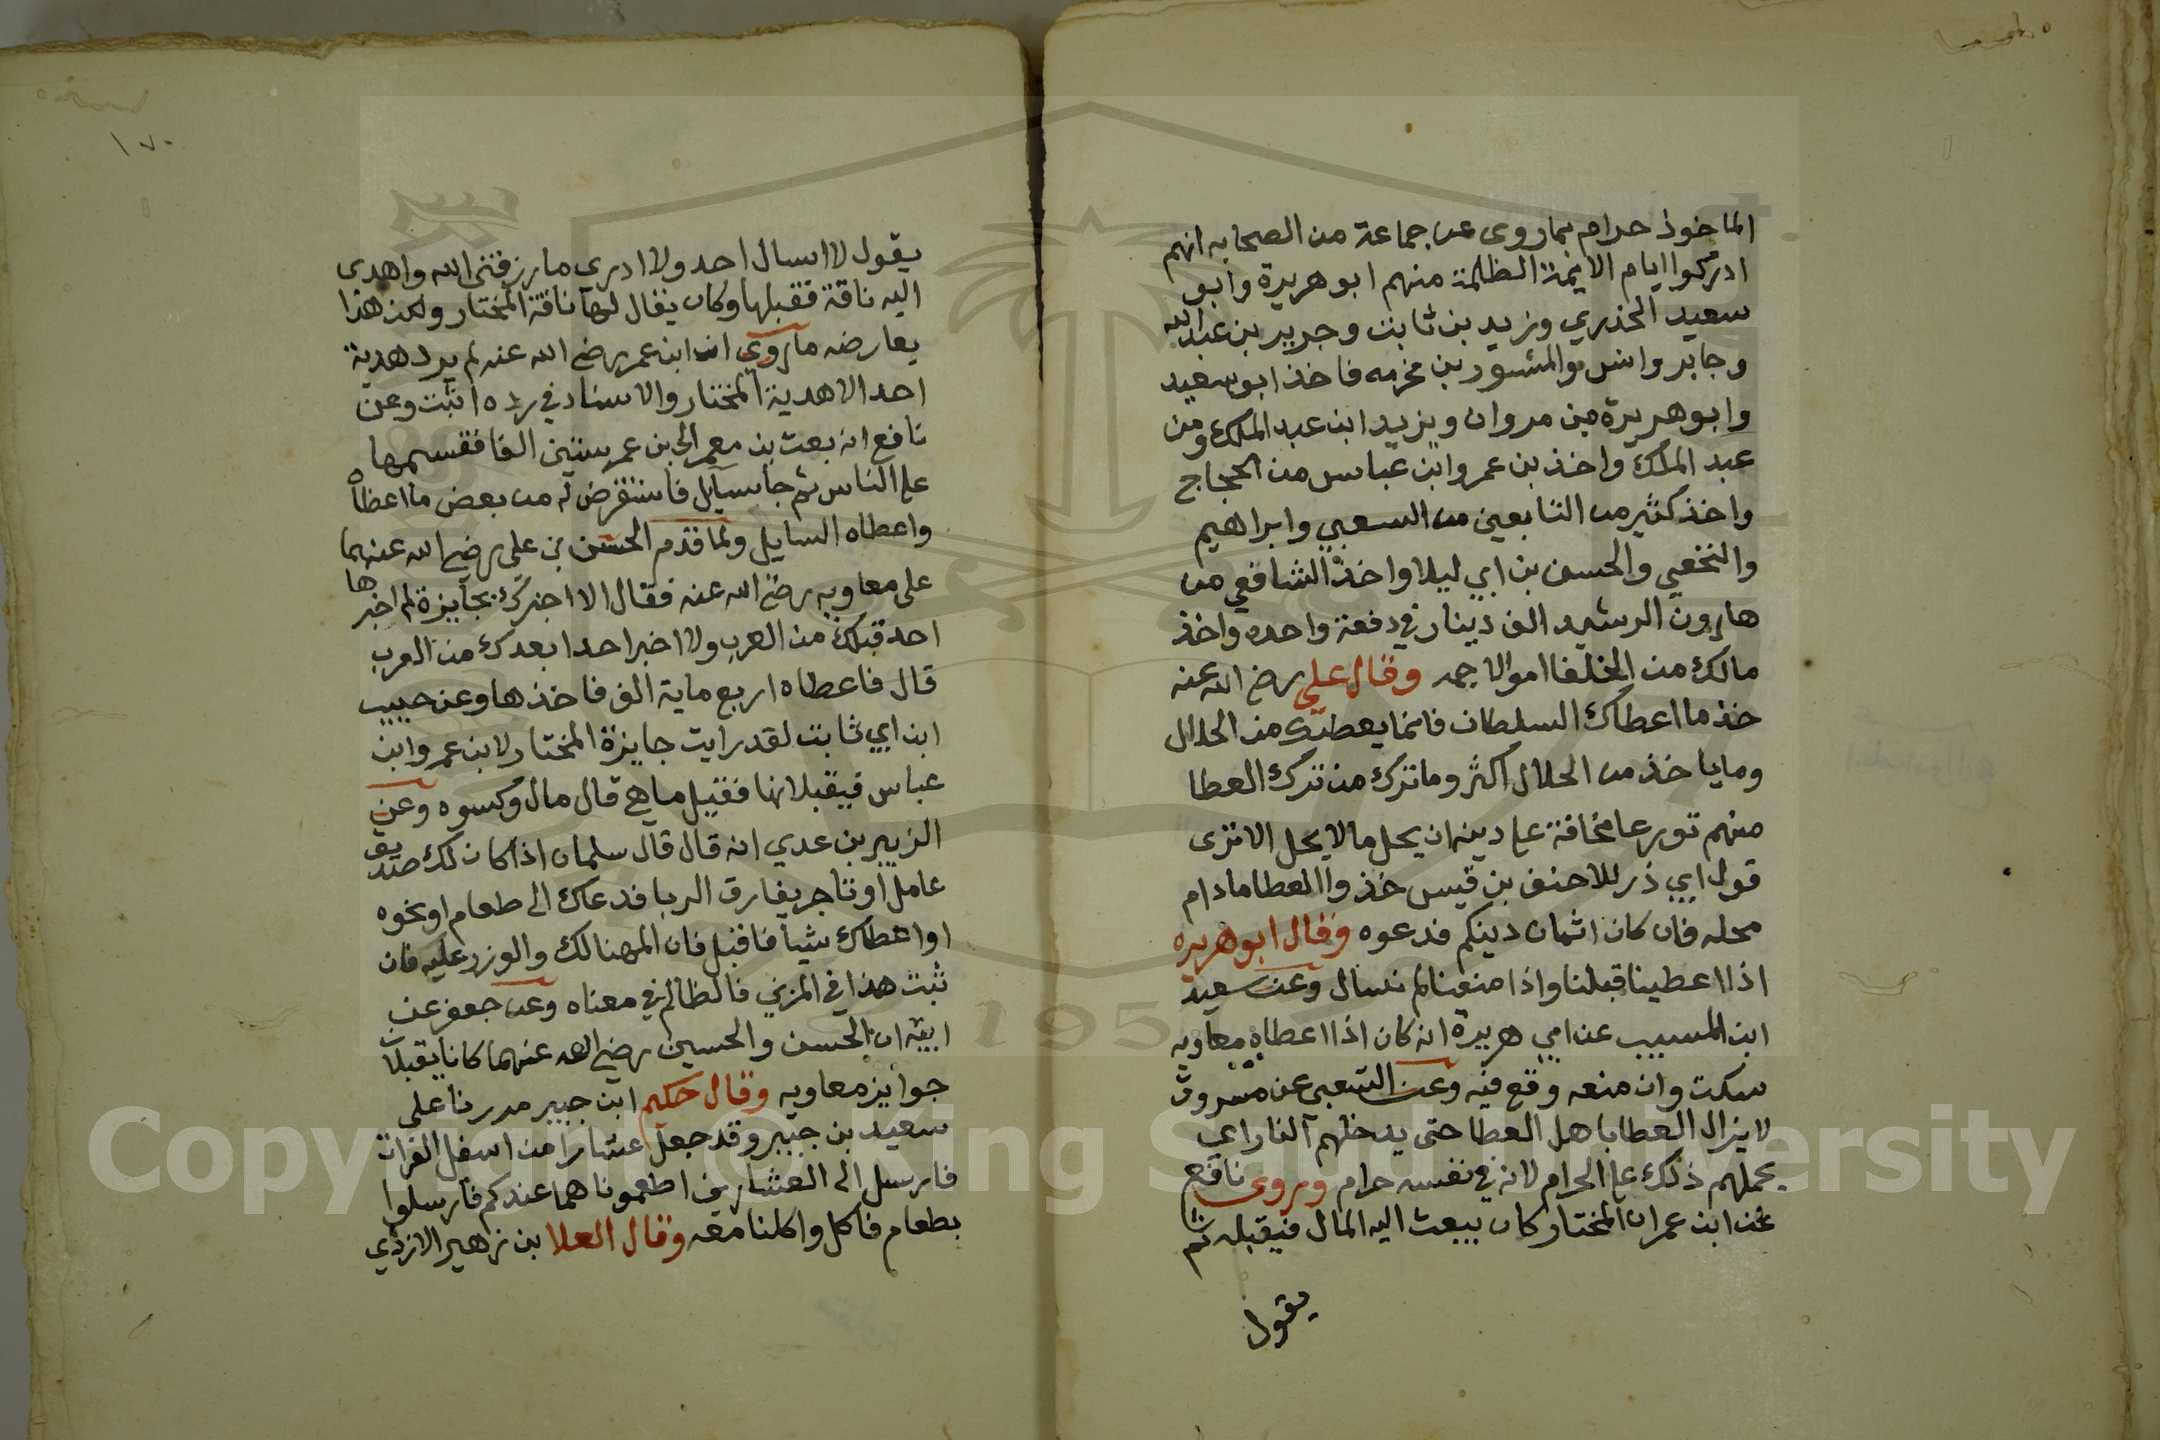 الماخوذ حرام بما روى عن جماعة من الصحابه انهم
ادركوا ايام الايمة الظلمة منهم ابو هريرة وابو
سعيد الخذري وزيد بن ثابت وجرير بن عبد الله
وجابر وانس والمسور بن مخرمه فاخذ ابو سعيد
وابو هريرة من مروان ويزيد ابن عبد الملك ومن
عبد الملك واخذ بن عمر وابن عباس من الحجاج
واخذ كثير من التابعين من السعبي وابراهيم
والنخعي والحسن بن ابي ليلا واخذ الشافعي من
هارون الرشيد الف دينار في دفعة واحده واخذ
مالك من الخلفا اموالا جمه وقال علي رضي الله عنه
خذ ما اعطاك السلطان فانما يعطيك من الحلال
وما ياخذ من الحلال اكثر وما ترك من ترك العطا
منهم تورعا مخافة على دينه ان يحل ما لا يحل الا ترى
قول ابي ذر للاحنف بن قيس خذوا العطا ما دام
محله فان كان اثمان دينكم فدعوه وقال ابو هريره
اذا اعطينا قبلنا واذا منعنا لم نسال وعن سعيد
ابن المسيب عن ابي هريرة انه كان اذا اعطاه معاويه
سكت وان منعه وقع فيه وعن الشعبي عن مسروق
لا يزال العطا باهل العطا حتى يدخلهم النار اي
يحملهم ذلك على الحرام لانه في نفسه حرام وروى نافع
عن ابن عمر ان المختار كان يبعث اليه المال فيقبله ثم
يقول
١٧٠
يقول لا اسال احد ولا ادري ما رزقني الله واهدى
اليه ناقة فقبلها وكان يقال لها ناقة المختار ولكن هذا
يعارضه ما روي ان ابن عمر رضي الله عنه لم يرد هدية
احد الا هدية المختار والاسناد في رده اثبت وعن
نافع انه بعث بن معمر الى بن عمر بستين الفا فقسمها
على الناس ثم جا سايل فاستقرض له من بعض ما اعطاه
واعطاه السايل ولما قدم الحسن بن علي رضي الله عنهما
على معاويه رضي الله عنه فقال الا اجزك بجايزة لم اجزها
احد قبلك من العرب ولا اخبر احدا بعدك من العرب
قال فاعطاه اربع ماية الف فاخذها وعن حبيب
ابن ابي ثابت لقد رايت جايزة المختار لابن عمر وابن
عباس فيقبلانها فقيل ما هي قال مال وكسوه وعن
الزبير بن عدي انه قال قال سلمان اذا كان لك صديق
عامل او تاجر يفارق الربا فدعاك الى طعام او نحوه
او اعطاك شيا فاقبل فان المهنا لك والوزر عليه فان
ثبت هذا في المربي فالظالم في معناه وعن جعفر عن
ابيه ان الحسن والحسين رضي الله عنهما كانا يقبلان
جوايز معاويه وقال حكيم ابن جبير مررنا على
سعيد بن جبير وقد جعل عشارا من اسفل الفرات
فارسل الى العشارين اطعمونا مما عندكم فارسلوا
بطعام فاكل واكلنا معه وقال العلا بن زهير الازدي
Copyright © King Saud University
195